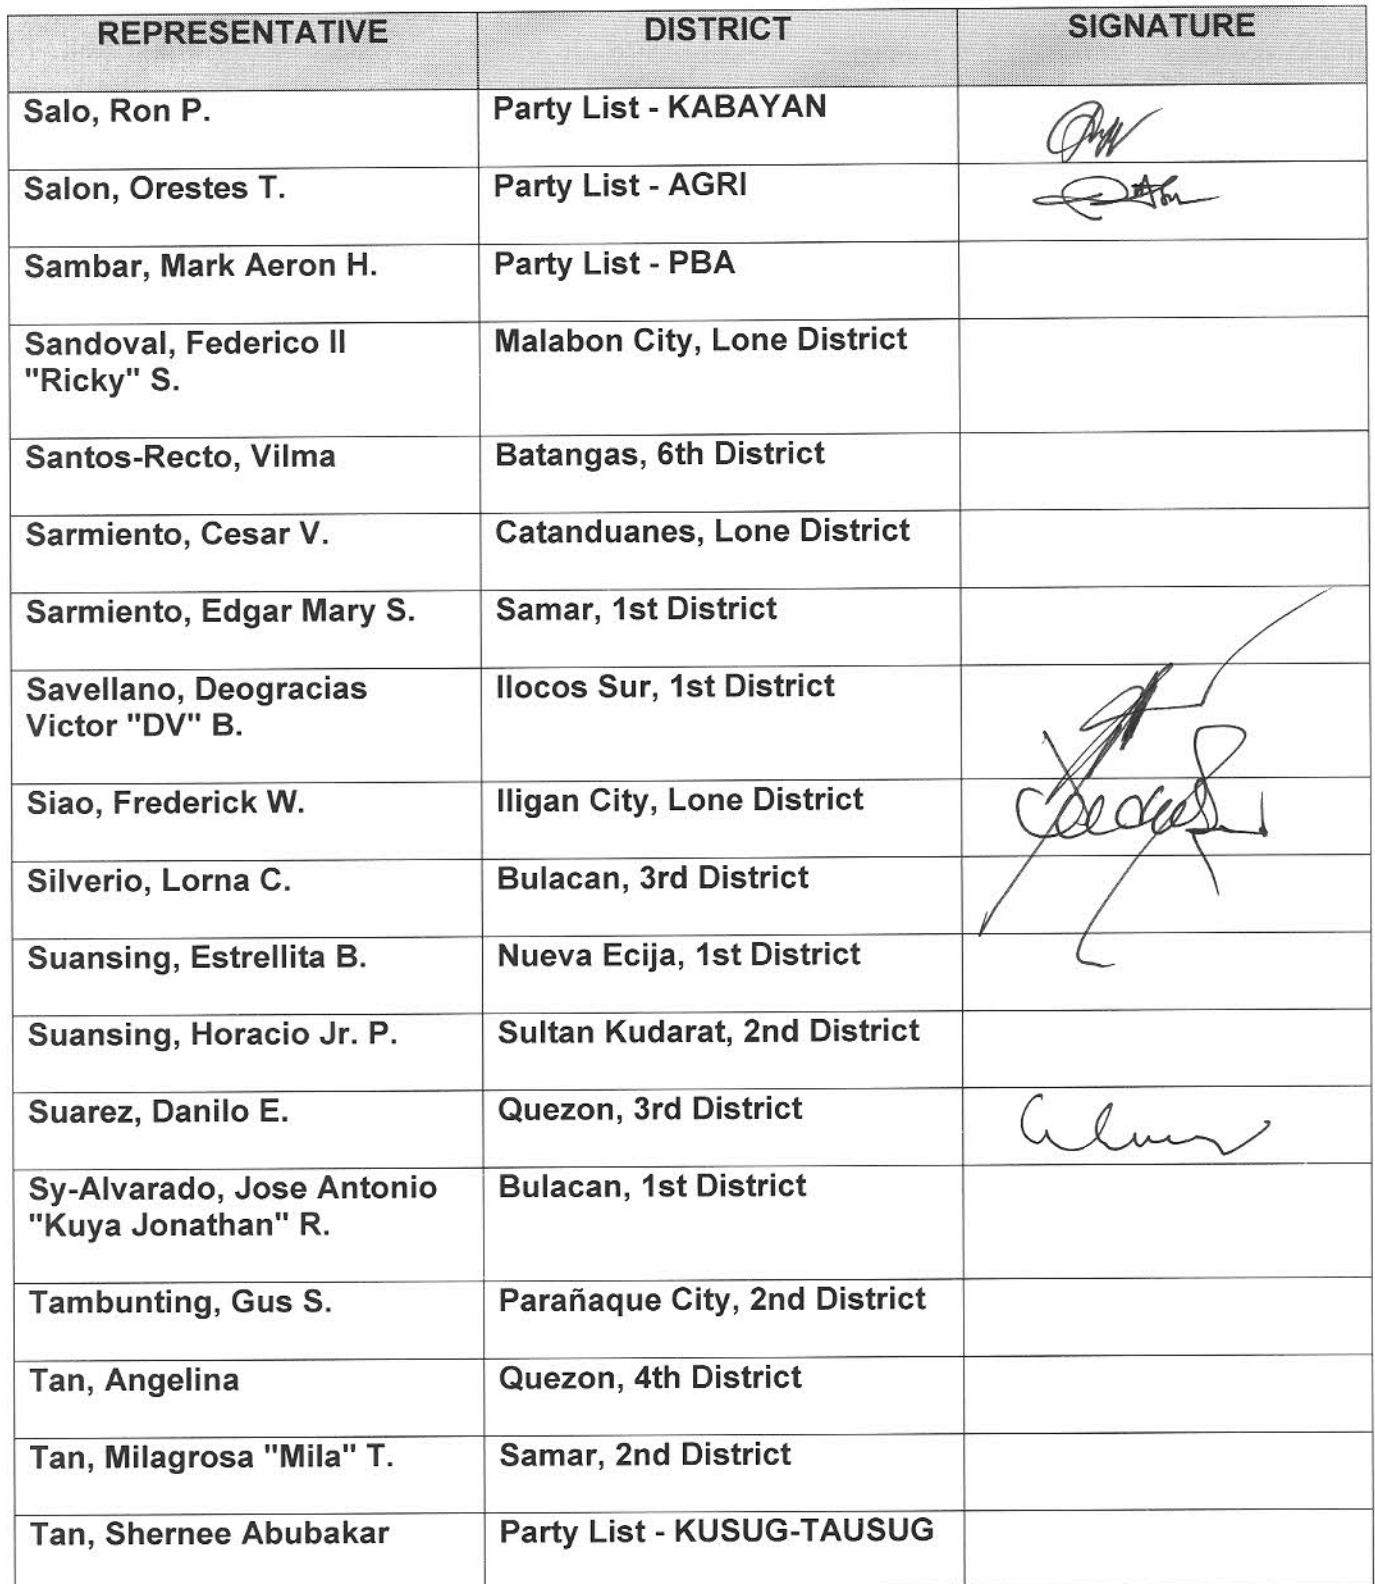 REPRESENTATIVE DISTRICT SIGNATURE
Salo, Ron P. Party List - KABAYAN
Salon, Orestes T. Party List - AGRI
Sambar, Mark Aeron H. Party List - PBA
Sandoval, Federico II Malabon City, Lone District
"Ricky" S.
Santos-Recto, Vilma Batangas, 6th District
Sarmiento, Cesar V. Catanduanes, Lone District
Sarmiento, Edgar Mary S. Samar, 1st District
Savellano, Deogracias Ilocos Sur, 1st District
Victor "DV" B.
Siao, Frederick W. Iligan City, Lone District
Silverio, Lorna C. Bulacan, 3rd District
Suansing, Estrellita B. Nueva Ecija, 1st District
Suansing, Horacio Jr. P. Sultan Kudarat, 2nd District
Suarez, Danilo E. Quezon, 3rd District
Sy-Alvarado, Jose Antonio Bulacan, 1st District
"Kuya Jonathan" R.
Tambunting, Gus S. Parañaque City, 2nd District
Tan, Angelina Quezon, 4th District
Tan, Milagrosa "Mila" T. Samar, 2nd District
Tan, Shernee Abubakar Party List - KUSUG-TAUSUG